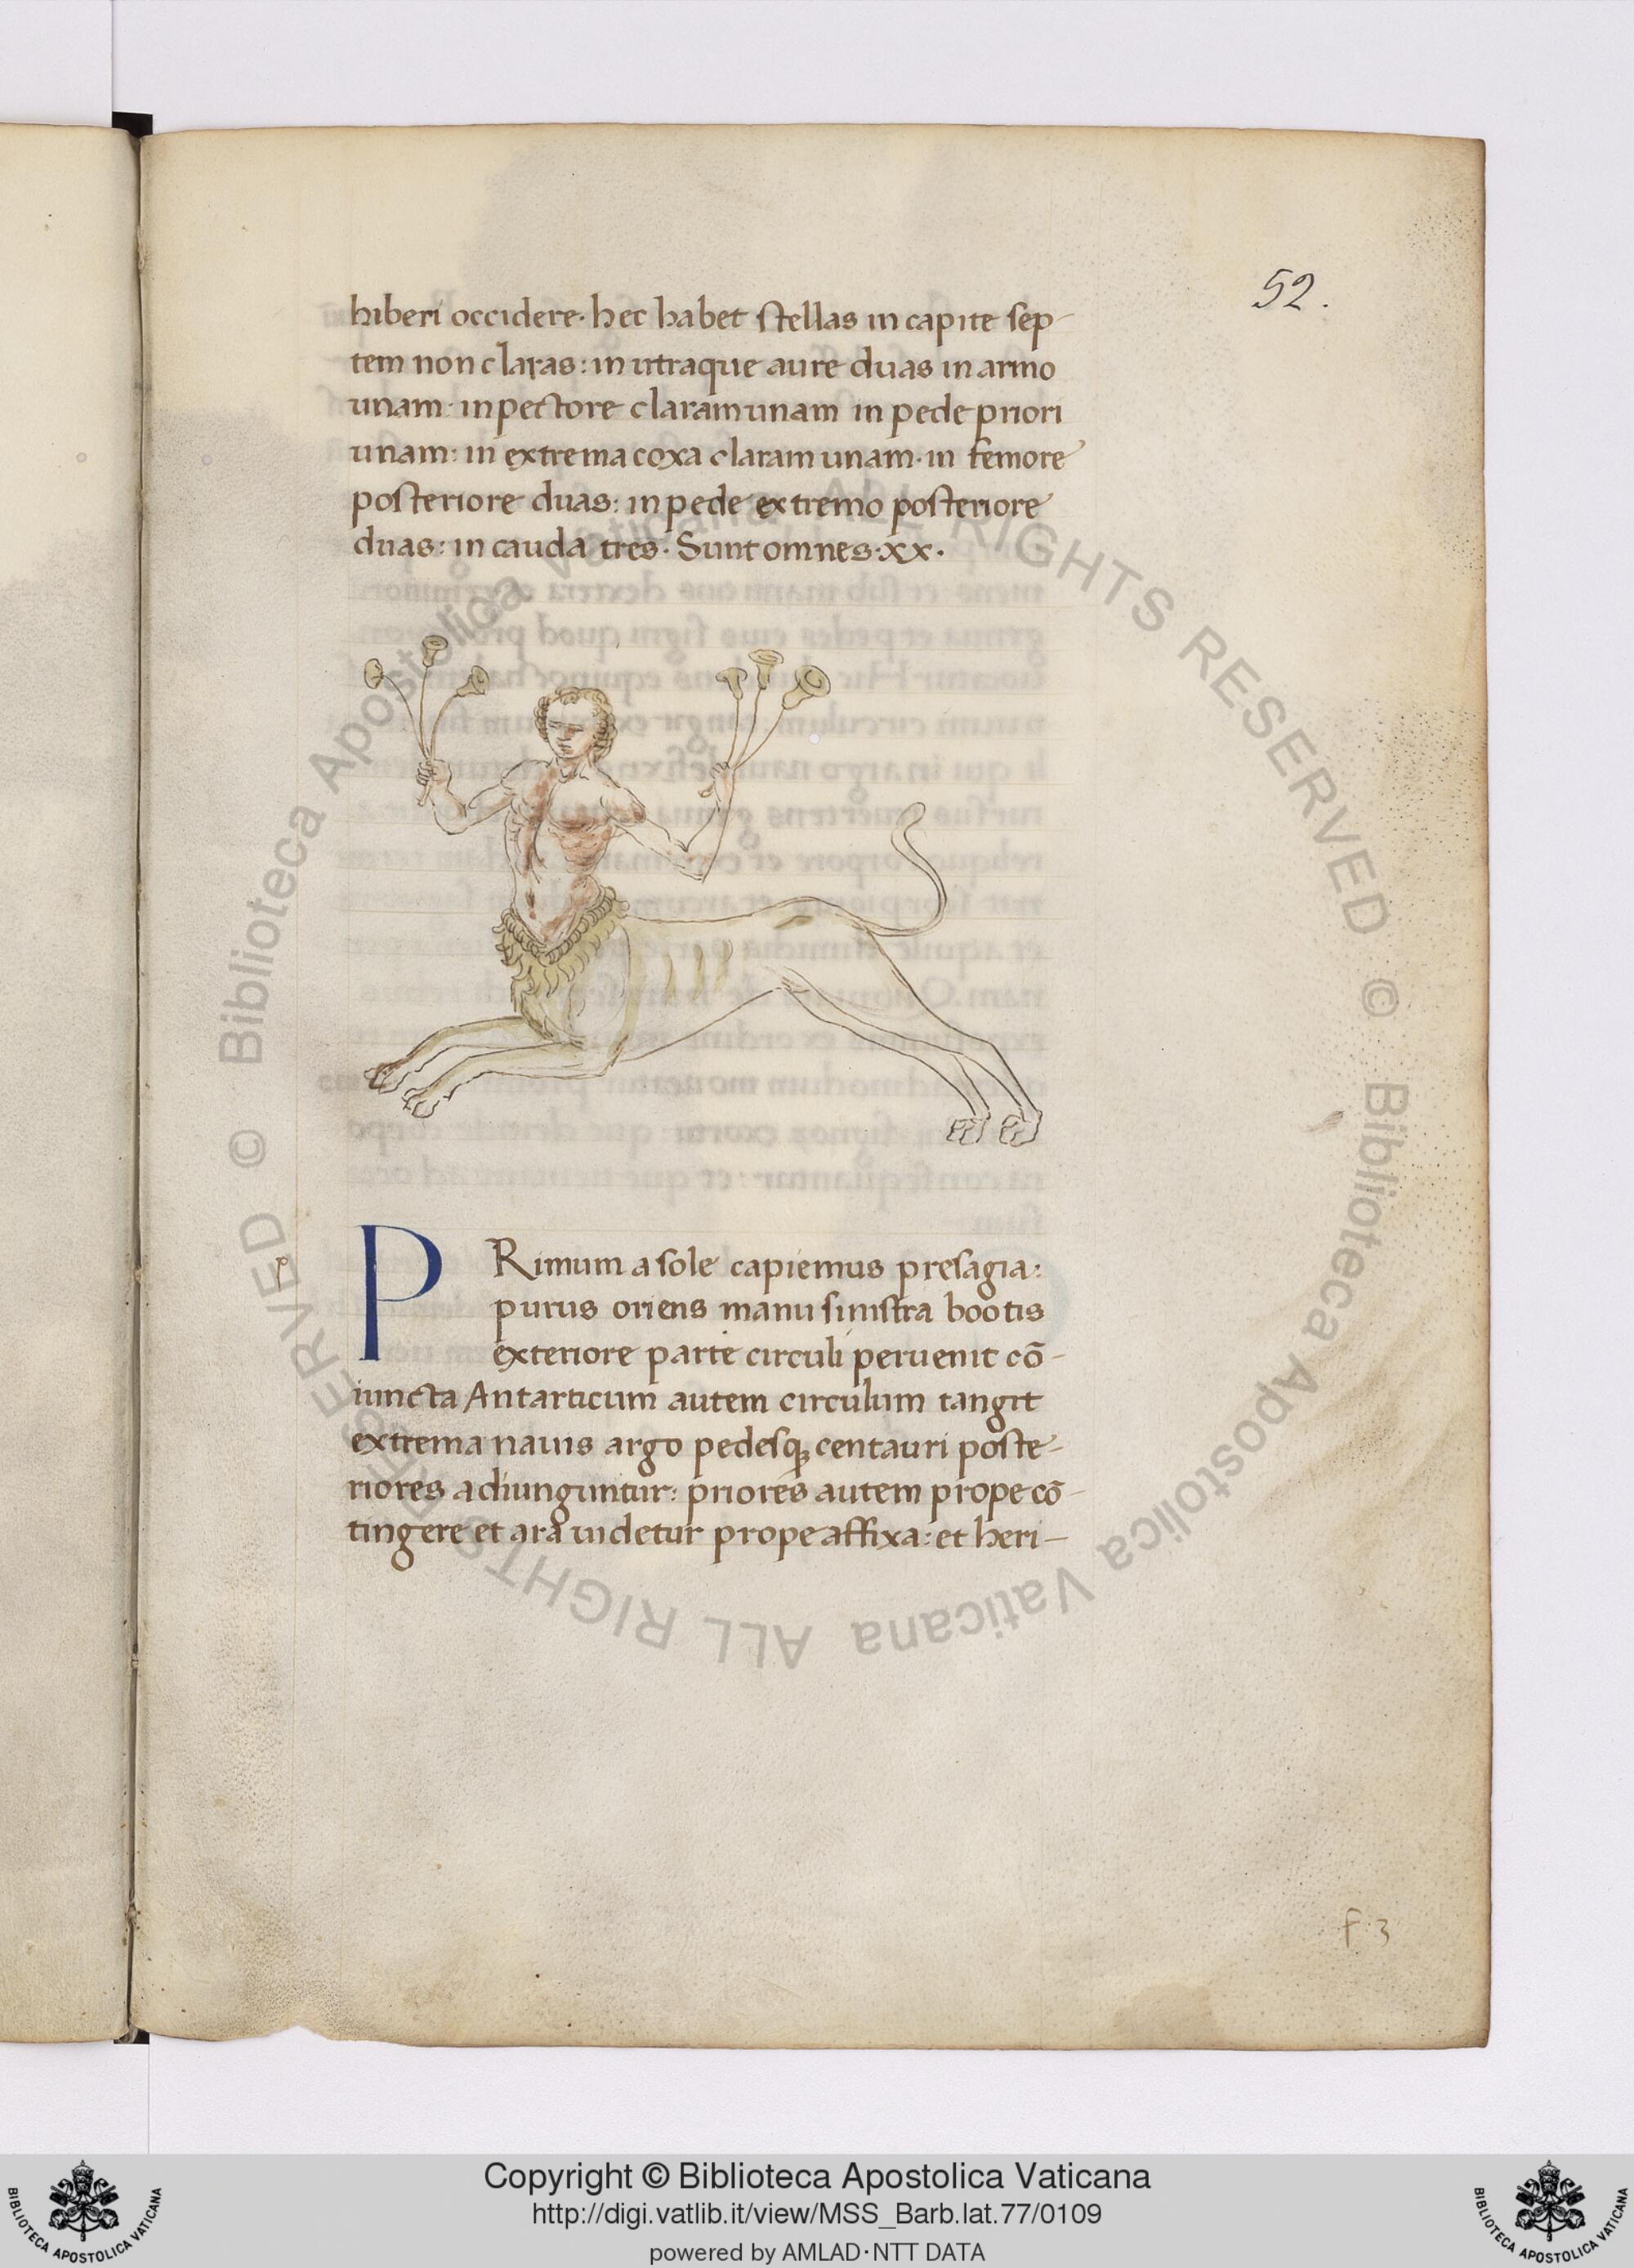 52.
hiberi occidere. hec habet stellas in capite sep-
tem non claras: in utraque aure duas in armo
unam. in pectore claram unam in pede priori
unam: in extrema coxa claram unam. in femore
posteriore duas: in pede extremo posteriore
duas: in cauda tres. Sunt omnes. xx.
p
PRimum a sole capiemus presagia:
purus oriens manu sinistra bootis
exteriore parte circuli peruenit cō-
iuncta Antarticum autem circulum tangit
extrema nauis argo pedesqꝫ centauri poste-
riores adiunguntur: priores autem prope cō-
tingere et ara uidetur prope affixa: et heri-
f. 3
© Biblioteca Apostolica Vaticana ALL RIGHTS RESERVED © Biblioteca Apostolica Vaticana ALL RIGHTS RESERVED
Copyright © Biblioteca Apostolica Vaticana
http://digi.vatlib.it/view/MSS_Barb.lat.77/0109
powered by AMLAD·NTT DATA
BIBLIOTECA APOSTOLICA VATICANA
BIBLIOTECA APOSTOLICA VATICANA